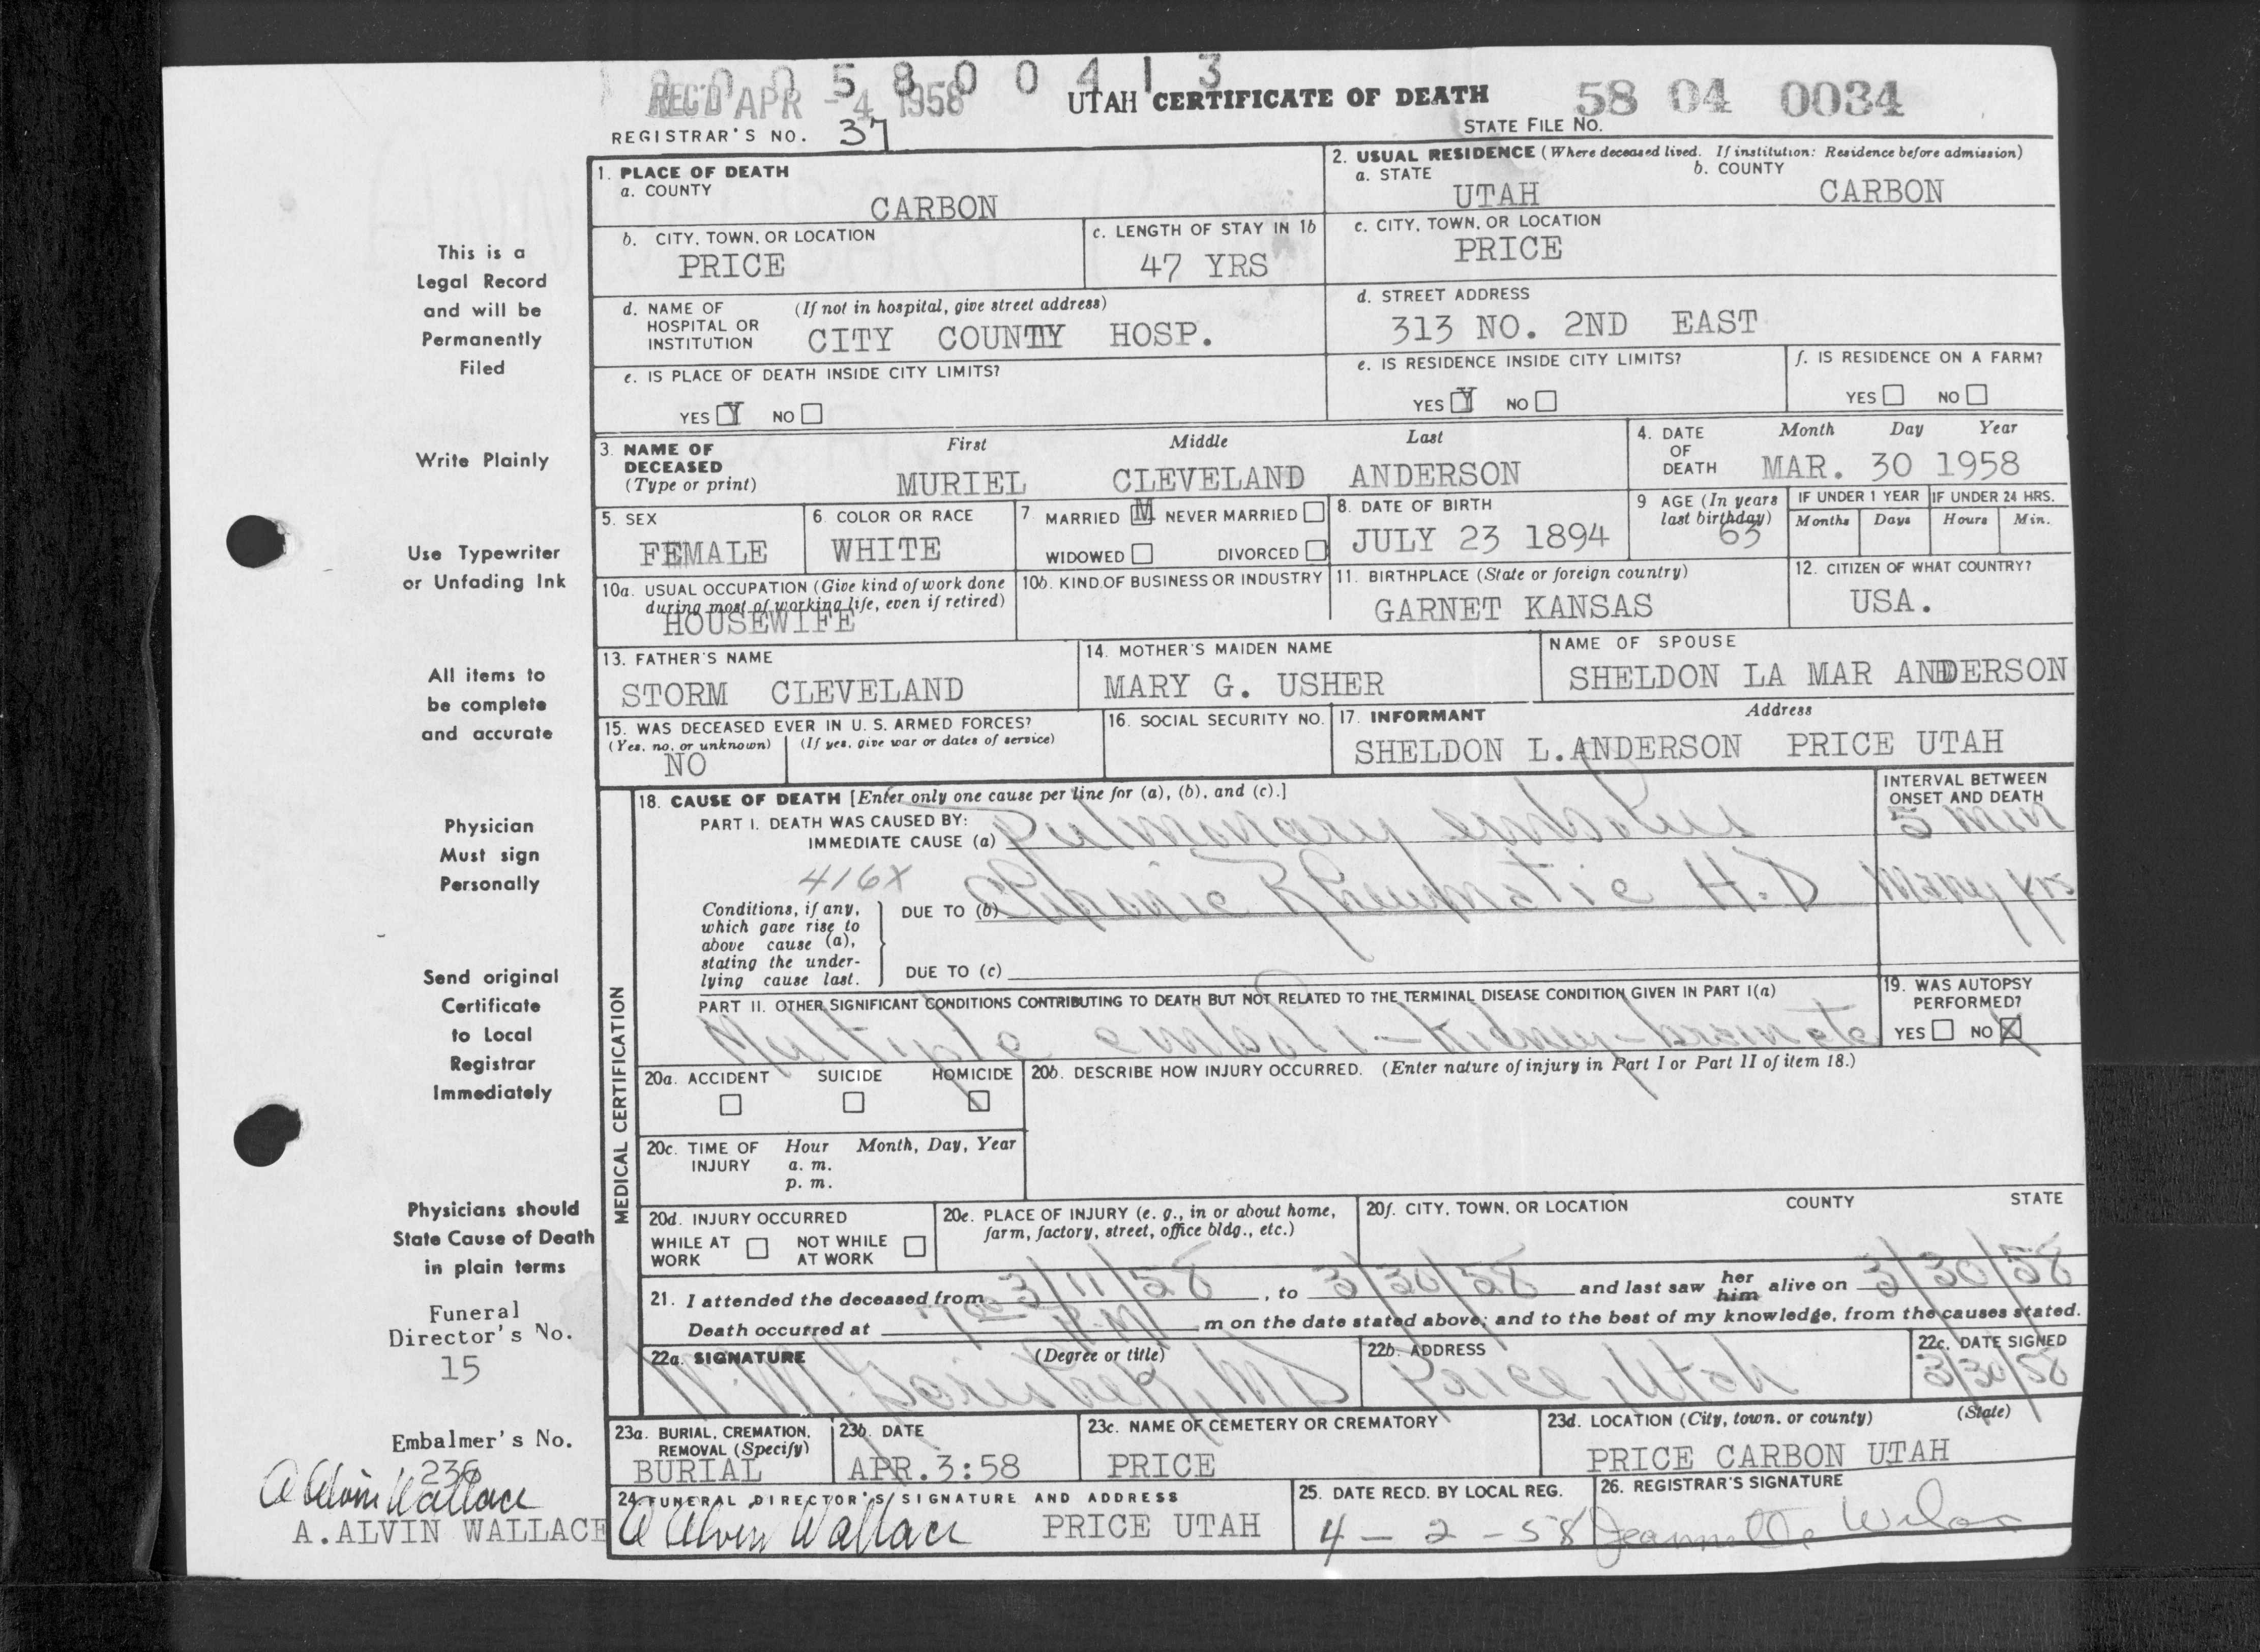 0 0 0 5 8 0 0 4 1 3
REC'D APR - 4 1958
UTAH CERTIFICATE OF DEATH
58 04 0034
STATE FILE NO.
REGISTRAR'S NO. 37
1. PLACE OF DEATH
a. COUNTY
CARBON
2. USUAL RESIDENCE (Where deceased lived. If institution: Residence before admission)
a. STATE b. COUNTY
UTAH CARBON
b. CITY, TOWN, OR LOCATION
PRICE
c. LENGTH OF STAY IN 1b
47 YRS
c. CITY, TOWN, OR LOCATION
PRICE
d. NAME OF HOSPITAL OR INSTITUTION (If not in hospital, give street address)
CITY COUNTY HOSP.
d. STREET ADDRESS
313 NO. 2ND EAST
e. IS PLACE OF DEATH INSIDE CITY LIMITS?
YES Y NO
e. IS RESIDENCE INSIDE CITY LIMITS?
YES Y NO
f. IS RESIDENCE ON A FARM?
YES NO
3. NAME OF DECEASED (Type or print)
First Middle Last
MURIEL CLEVELAND ANDERSON
4. DATE OF DEATH
Month Day Year
MAR. 30 1958
5. SEX
FEMALE
6. COLOR OR RACE
WHITE
7. MARRIED M NEVER MARRIED
WIDOWED DIVORCED
8. DATE OF BIRTH
JULY 23 1894
9 AGE (In years last birthday)
63
IF UNDER 1 YEAR
Months Days
IF UNDER 24 HRS.
Hours Min.
10a. USUAL OCCUPATION (Give kind of work done during most of working life, even if retired)
HOUSEWIFE
10b. KIND OF BUSINESS OR INDUSTRY
11. BIRTHPLACE (State or foreign country)
GARNET KANSAS
12. CITIZEN OF WHAT COUNTRY?
USA.
13. FATHER'S NAME
STORM CLEVELAND
14. MOTHER'S MAIDEN NAME
MARY G. USHER
NAME OF SPOUSE
SHELDON LA MAR ANDERSON
15. WAS DECEASED EVER IN U. S. ARMED FORCES?
(Yes, no, or unknown) (If yes, give war or dates of service)
NO
16. SOCIAL SECURITY NO.
17. INFORMANT Address
SHELDON L.ANDERSON PRICE UTAH
MEDICAL CERTIFICATION
18. CAUSE OF DEATH [Enter only one cause per line for (a), (b), and (c).]
INTERVAL BETWEEN ONSET AND DEATH
PART I. DEATH WAS CAUSED BY:
IMMEDIATE CAUSE (a) Pulmonary embolus 5 min
416X
Conditions, if any, which gave rise to above cause (a), stating the underlying cause last.
DUE TO (b) Chronic Rheumatic H.D Many yrs
DUE TO (c)
PART II. OTHER SIGNIFICANT CONDITIONS CONTRIBUTING TO DEATH BUT NOT RELATED TO THE TERMINAL DISEASE CONDITION GIVEN IN PART I(a)
Multiple emboli - kidney - brain etc
19. WAS AUTOPSY PERFORMED?
YES NO X
20a. ACCIDENT SUICIDE HOMICIDE
20b. DESCRIBE HOW INJURY OCCURRED. (Enter nature of injury in Part I or Part II of item 18.)
20c. TIME OF INJURY Hour Month, Day, Year
a. m.
p. m.
20d. INJURY OCCURRED
WHILE AT WORK NOT WHILE AT WORK
20e. PLACE OF INJURY (e. g., in or about home, farm, factory, street, office bldg., etc.)
20f. CITY, TOWN, OR LOCATION COUNTY STATE
21. I attended the deceased from 3/11/58, to 3/30/58 and last saw her him alive on 3/30/58
Death occurred at 7 00 P.M m on the date stated above; and to the best of my knowledge, from the causes stated.
22a. SIGNATURE (Degree or title)
MD
22b. ADDRESS
Price, Utah
22c. DATE SIGNED
3/30/58
23a. BURIAL, CREMATION, REMOVAL (Specify)
BURIAL
23b. DATE
APR.3:58
23c. NAME OF CEMETERY OR CREMATORY
PRICE
23d. LOCATION (City, town, or county) (State)
PRICE CARBON UTAH
24. FUNERAL DIRECTOR'S SIGNATURE AND ADDRESS
A Alvin Wallace PRICE UTAH
25. DATE RECD. BY LOCAL REG.
4 - 2 - 58
26. REGISTRAR'S SIGNATURE
Jeannette
This is a
Legal Record
and will be
Permanently
Filed
Write Plainly
Use Typewriter
or Unfading Ink
All items to
be complete
and accurate
Physician
Must sign
Personally
Send original
Certificate
to Local
Registrar
Immediately
Physicians should
State Cause of Death
in plain terms
Funeral
Director's No.
15
Embalmer's No.
236
A Alvin Wallace
A.ALVIN WALLACE